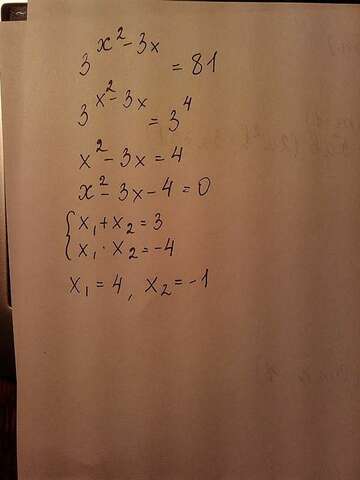 3^{x^2-3x} = 81
3^{x^2-3x} = 3^4
x^2-3x = 4
x^2-3x-4 = 0
{ x_1+x_2 = 3
x_1 · x_2 = -4
x_1 = 4, x_2 = -1